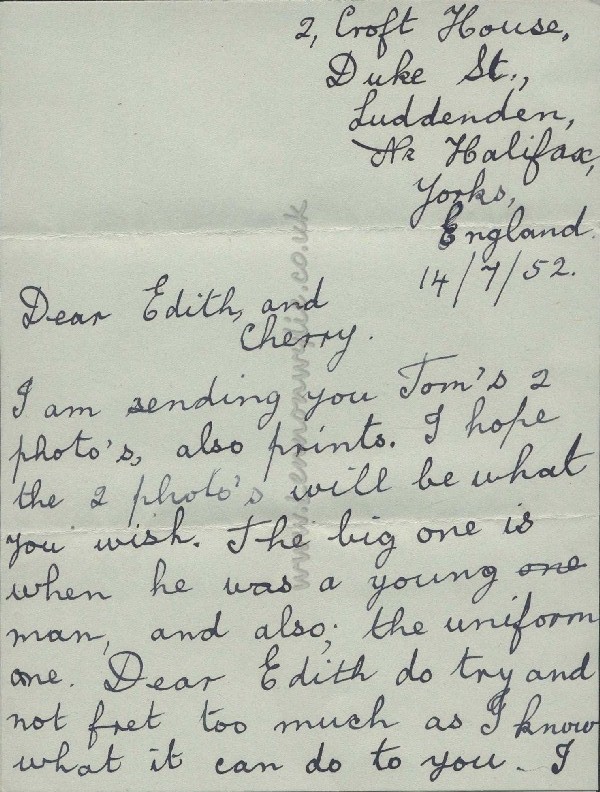 2, Croft House,
Duke St.,
Luddenden,
Nr Halifax,
Yorks,
England.
14/7/52.
Dear Edith, and
Cherry.
I am sending you Tom's 2
photo's, also prints. I hope
the 2 photo's will be what
you wish. The big one is
when he was a young one
man, and also, the uniform
one. Dear Edith do try and
not fret too much as I know
what it can do to you. I